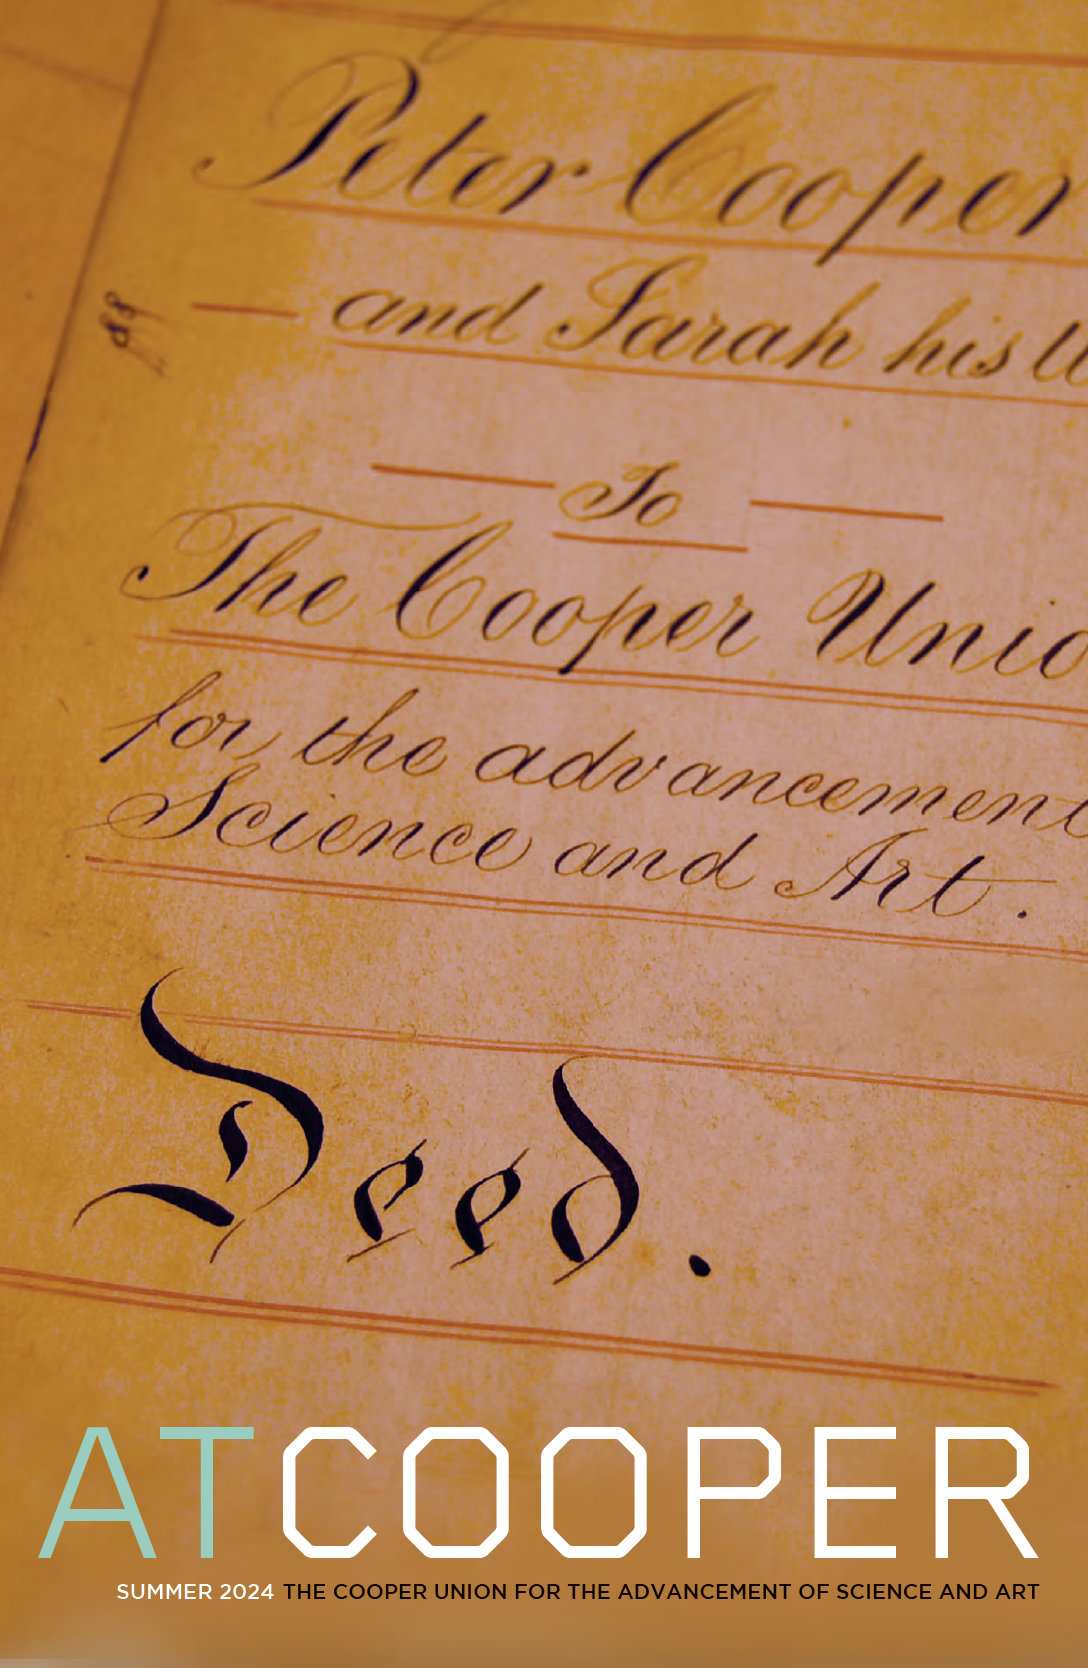 Peter Cooper
and Sarah his
To
The Cooper Unio
for the advancement
Science and Art.
Deed.
ATCOOPER
SUMMER 2024 THE COOPER UNION FOR THE ADVANCEMENT OF SCIENCE AND ART